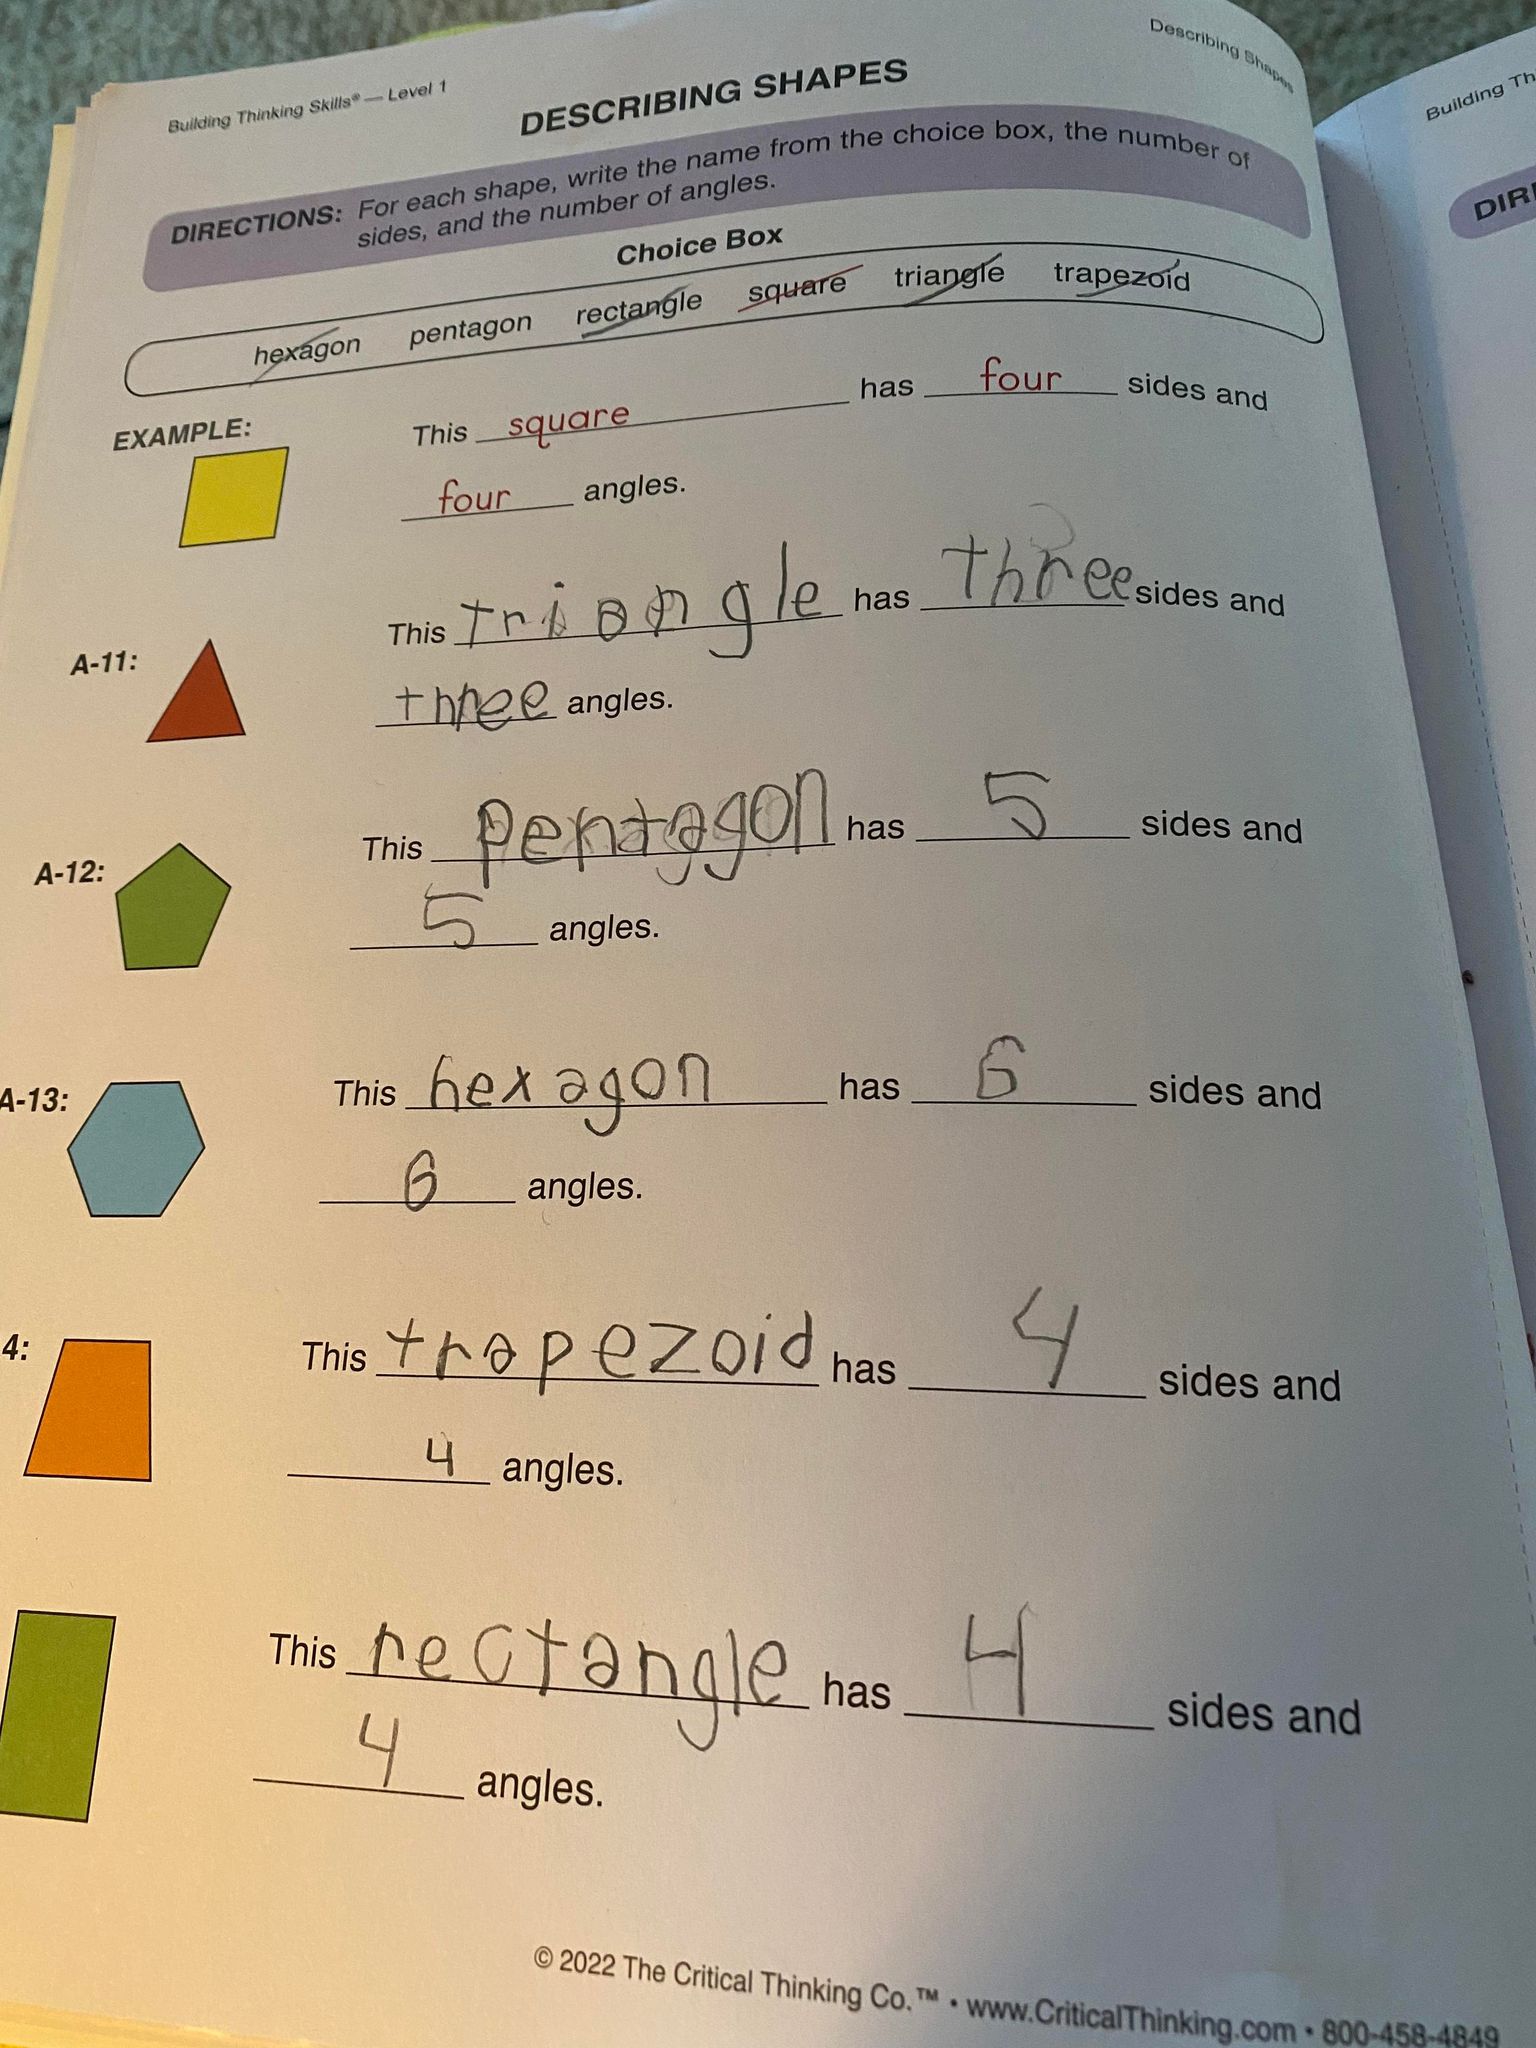 Building Thinking Skills® — Level 1
Describing Shapes
DESCRIBING SHAPES
DIRECTIONS: For each shape, write the name from the choice box, the number of
sides, and the number of angles.
Choice Box
hexagon pentagon rectangle square triangle trapezoid
EXAMPLE: This square has four sides and
four angles.
A-11: This triangle has three sides and
three angles.
A-12: This pentagon has 5 sides and
5 angles.
A-13: This hexagon has 6 sides and
6 angles.
4: This trapezoid has 4 sides and
4 angles.
This rectangle has 4 sides and
4 angles.
© 2022 The Critical Thinking Co.™ • www.CriticalThinking.com • 800-458-4849
Building Th
DIR